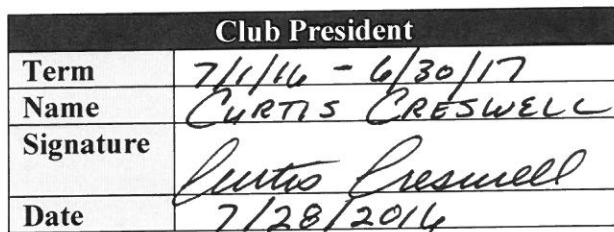 Club President
Term 7/1/16 - 6/30/17
Name CURTIS CRESWELL
Signature Curtis Creswell
Date 7/28/2016